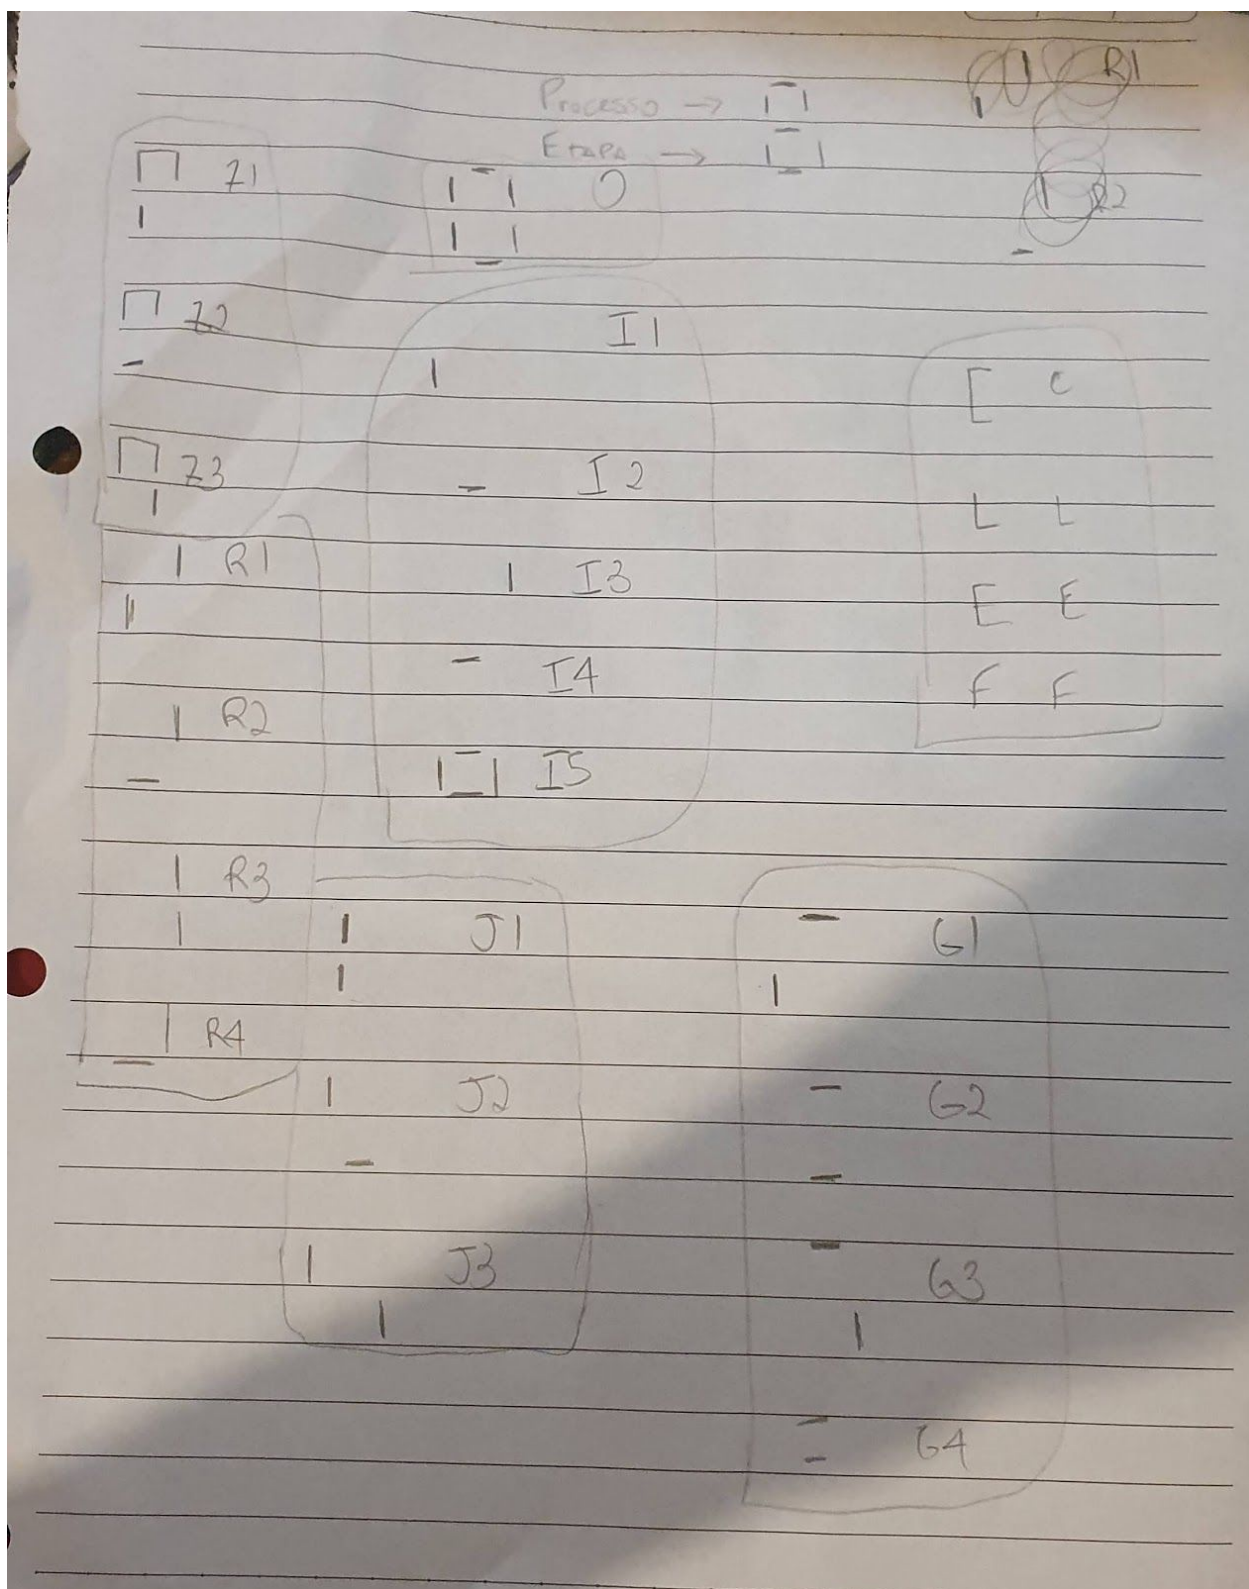 Processo →
Etapa →
R1
R2
Z1
Z2
Z3
O
I1
I2
I3
I4
I5
C
L L
E E
F F
R1
R2
R3
R4
J1
J2
J3
G1
G2
G3
G4